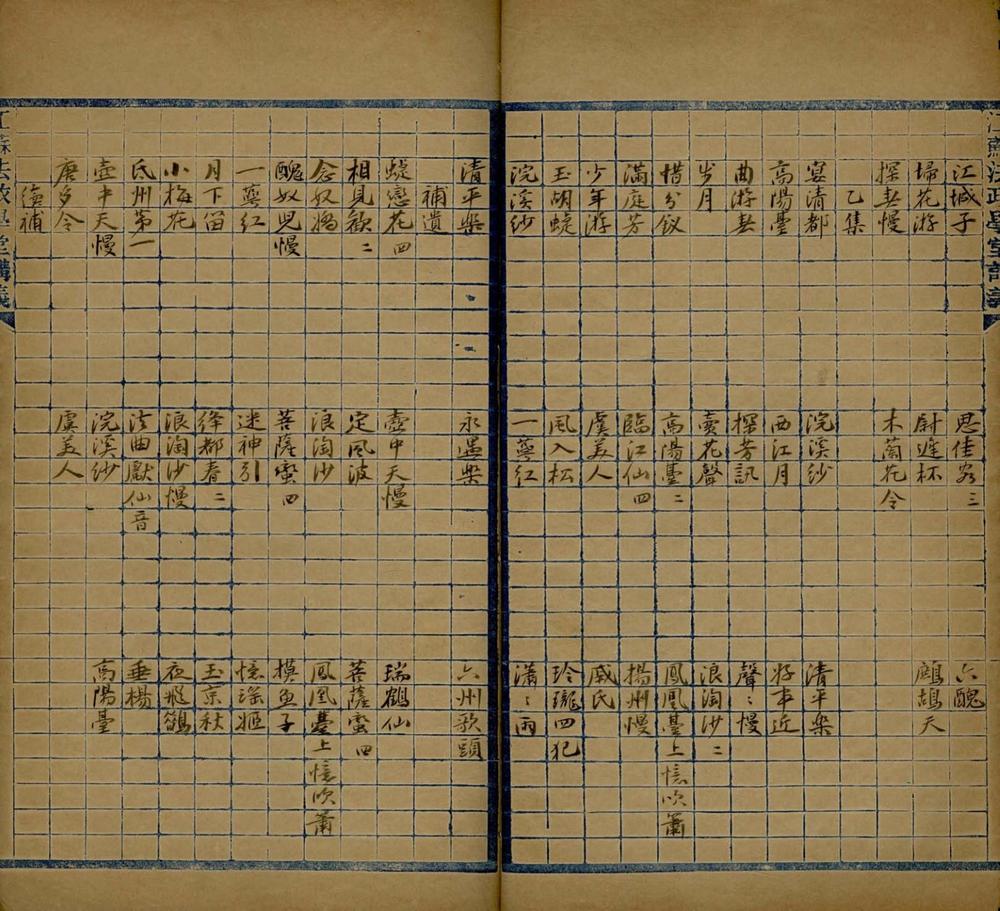 江蘇法政學堂講義
江城子 思佳客三 六醜
掃花游 尉遲杯 鷓鴣天
探春慢 木蘭花令
乙集
宴清都 浣溪紗 清平樂
高陽臺 西江月 好事近
曲游春 探芳訊 聲〻慢
岁月 賣花聲 浪淘沙二
惜分釵 高陽臺二 鳳凰臺上憶吹簫
滿庭芳 臨江仙四 揚州慢
少年游 虞美人 戚氏
玉胡蜨 風入松 玲瓏四犯
浣溪紗 一萼紅 瀟〻雨
清平樂 永遇樂 六州歌頭
補遺
蜨戀花四 壺中天慢 瑞鶴仙
相見歡二 定風波 菩薩蠻四
念奴嬌 浪淘沙 鳳凰臺上憶吹簫
醜奴兒慢 菩薩蠻四 摸魚子
一萼紅 迷神引 憶瑤姬
月下笛 絳都春二 玉京秋
小梅花 浪淘沙慢 夜飛鵲
氐州第一 法曲獻仙音 垂楊
壺中天慢 浣溪紗 高陽臺
唐多令 虞美人
續補
江蘇法政學堂講義